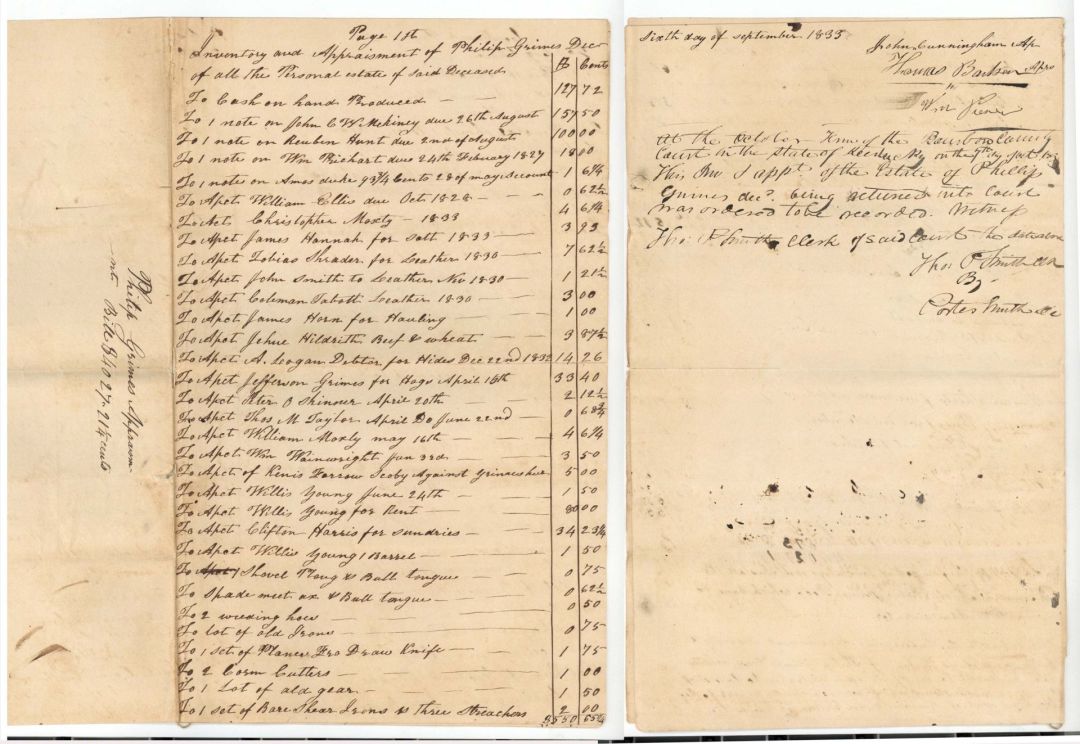 Page 1st
Inventory and Appraisment of Philip Grimes Decd
of all the Personal estate of Said Deceased $ Cents
To Cash on hand Produced — — 127 72
To 1 note on John C W. Mckiney due 26th August 157 50
To 1 note on Reuben Hunt due 2nd of August 100 00
To 1 note on Wm Richart due 24th February 1827 18 00
To 1 notes on Amos duke 93 3/4 Cents 28 of may Account 1 6 1/4
To Apct William Ellis due Oct 1828 — 0 62 1/2
To Act Christopher Moxly — 1833 4 6 1/4
To Apct James Hannah for Salt 1833 — 3 93
To Apct Tobias Shrader for Leather 1830 — 7 62 1/2
To Apct John Smith to Leathers Nov 1830 1 21 1/2
To Apct Coleman Tabott Leather 1830 — 3 00
To Apct James Horn for Hauling — 1 00
To Apct Jehue Hildrith Beef & wheat — 3 87 1/2
To Apct A. Logan Debtor for Hides Dec 22nd 1832 14 26
To Apct Jefferson Grimes for Hogs April 15th 33 40
To Apct Peter O Skinner April 20th — 2 12 1/2
To Apct Thos M Taylor April Do June 22nd — 0 68 3/4
To Apct William Moxly may 16th — 4 6 1/4
To Apct Wm Wainwright Jan 3rd — 3 50
To Apct of Kenis Farrow Scoby Against Grimes 5 00
To Apct Willis Young June 24th — 1 50
To Apct Willis Young for Rent — 80 00
To Apct Clifton Harris for Sundries — 34 23 1/4
To Apct Willis Young 1 Barrel — 1 50
To 1 Shovel Ploug & Bull tongue — 0 75
To Spade meet ax & Bull tongue — 0 62 1/2
To 2 weeding hoes — 0 50
To lot of old Irons — 0 75
To 1 Set of Planes Fro Draw Knife — 1 75
To 2 Corn Cutters — 1 00
To 1 Lot of old gear — 1 50
To 1 Set of Bare Shear Irons & three Streachers 2 00
Philip Grimes Appraisment
Bill $4027. 21 1/4 cents
Sixth day of September 1833
John Cunningham Ap
Thomas Apprs
Wm
At the October Term of the Bourbon County
Court in the State of Kentucky on the 7th day Oct
This Inv & appt of the Estate of Philip
Grimes decd. being returned into Court
was ordered to be recorded. Witness
Tho. P. Smith Clerk of said Court the date above
Thos P Smith Clk
By
Porter Smith DC